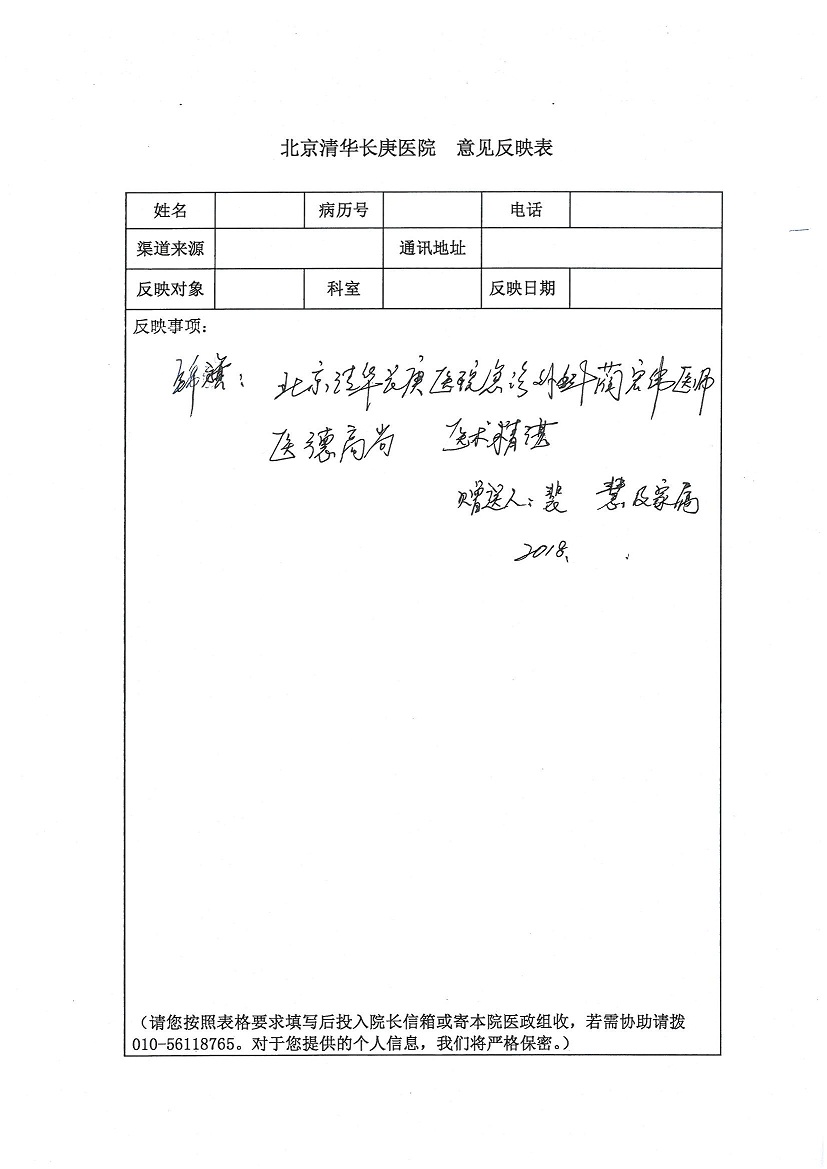 北京清华长庚医院 意见反映表
姓名 病历号 电话
渠道来源 通讯地址
反映对象 科室 反映日期
反映事项：
锦旗：北京清华长庚医院急诊外科蔺宏伟医师
医德高尚 医术精湛
赠送人：裴 慧及家属
2018.
（请您按照表格要求填写后投入院长信箱或寄本院医政组收，若需协助请拨
010-56118765。对于您提供的个人信息，我们将严格保密。）